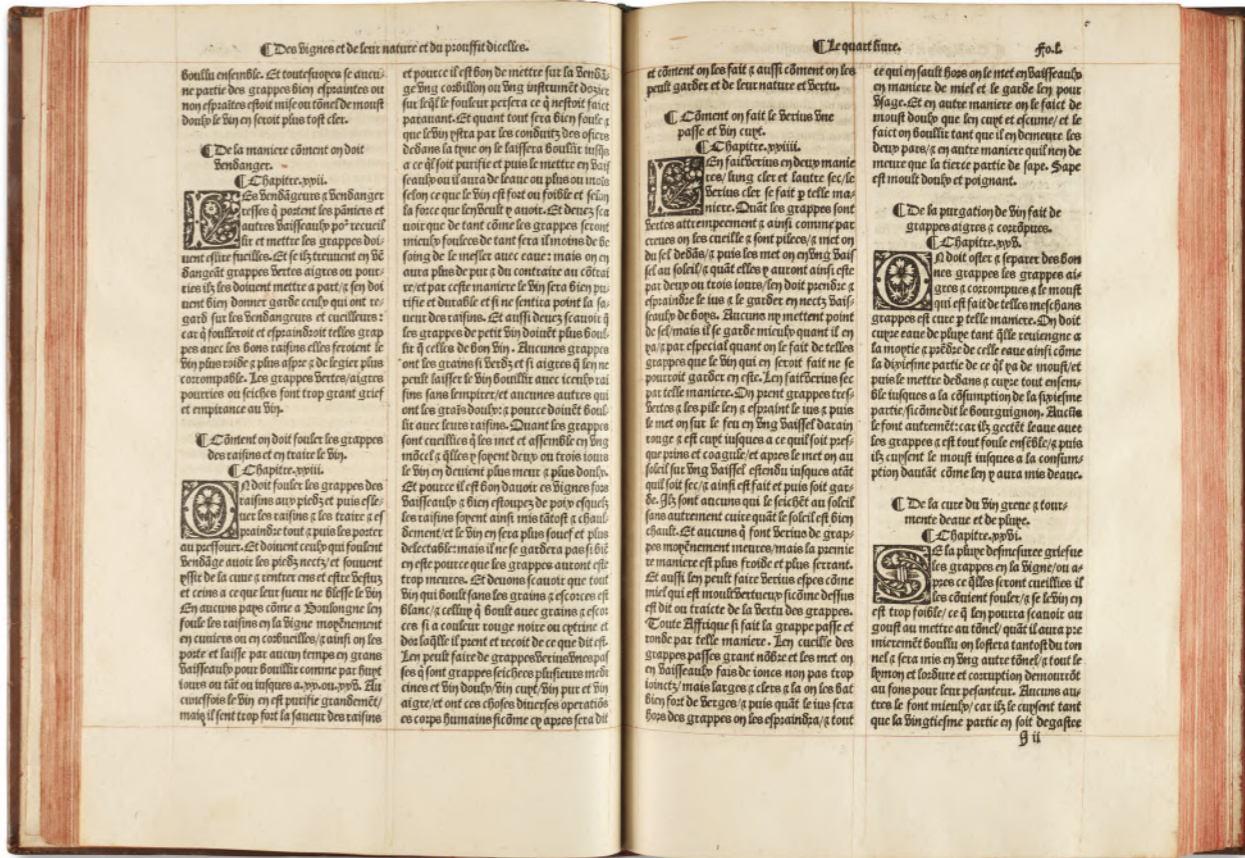 ¶ Des vignes et de leur nature et du prouffit dicelles.
boullu ensemble. Et toutesuoyes se aucu-
ne partie des grappes bien espraintes ou
non espraītes estoit mise ou tōnel de moust
doulx le vin en seroit plus tost cler.
¶ De la maniere cōment on doit
vendanger.
¶ Chapitre.xvii.
LEs vendāgeurs ⁊ vendanger
resses q̄ portent les pāniers et
autres vaisseaulx por̄ recueil
lir et mettre les grappes doi-
uent eslire fueilles. Et se ilz treuuent en vē
dangeāt grappes vertes aigres ou pour-
ries ilz les doiuent mettre a part/⁊ sen doi
uent bien donner garde ceulx qui ont re-
gard sur les vendangeurs et cueilleurs:
car q̄ foulleroit et espraindroit telles grap
pes auec les bons raisins elles feroient le
vin plus roide ⁊ plus aspre ⁊ de legier plus
corrompable. Les grappes vertes/aigres
pourries ou seiches font trop grant grief
et empirance au vin.
¶ Cōment on doit fouler les grappes
des raisins et en traire le vin.
¶ Chapitre.xviii.
ON doit fouler les grappes des
raisins aux piedz et puis esle-
uer les raisins ⁊ les traire ⁊ es
praindre tout ⁊ puis les porter
au pressouer. Et doiuent ceulx qui foulent
vendāge auoir les piedz nectz/et souuent
yssir de la cuue ⁊ rentrer ens et estre vestuz
et ceins a ce que leur sueur ne blesse le vin
En aucuns pays cōme a Boulongne len
foule les raisins en la vigne moyēnement
en cuuiers ou en corbueilles/⁊ ainsi on les
porte et laisse par aucun temps en grans
vaisseaulx pour boullir comme par huyt
iours ou tāt ou iusques a.xv.ou.xxv. Au
cuneffois le vin en est purifie grandemēt/
mais il sent trop fort la saueur des raisins
et pource il est bon de mettre sur la vendā-
ge vng corbillon ou vng instrumēt dozier
sur leq̄l le fouleur persera ce q̄ nestoit faict
parauant. Et quant tout sera bien foule ⁊
que le vin ystra par les conduitz des osiers
dedans la tyne on le laissera boullir iusq̄s
a ce q̄l soit purifie et puis le mettre en vais
seaulx ou il aura de leaue ou plus ou mois
selon ce que le vin est fort ou foible et selon
la force que len veult y auoir. Et deuez sca
uoir que de tant cōme les grappes seront
mieulx foulees de tant sera il moins de be
soing de le mesler auec eaue: mais on en
aura plus de pur ⁊ du contraire au cōtrai
re/et par ceste maniere le vin sera bien pu-
rifie et durable et si ne sentira point la sa-
ueur des raisins. Et aussi deuez scauoir q̄
les grappes de petit vin doiuēt plus boul-
lir q̄ celles de bon vin. Aucunes grappes
ont les grains si verdz et si aigres q̄ len ne
peult laisser le vin boullir auec iceulx rai
sins sans lempirer/et aucunes autres qui
ont les graīs doulx:⁊ pource doiuēt boul-
lir auec leurs raisins. Quant les grappes
sont cueillies q̄ les met et assemble en vng
mōcel ⁊ q̄lles y soyent deux ou trois iours
le vin en deuient plus meur ⁊ plus doulx.
Et pource il est bon dauoir es vignes fors
vaisseaulx ⁊ bien estoupez de poix esquelz
les raisins soyent ainsi mis tātost ⁊ chaul-
dement/et le vin en sera plus souef et plus
delectable:mais il ne se gardera pas si biē
en este pource que les grappes auront este
trop meures. Et deuons scauoir que tout
vin qui boult sans les grains ⁊ escorces est
blanc/⁊ celluy q̄ boult auec grains ⁊ escor
ces si a couleur rouge noire ou cytrine et
dor laq̄lle il prent et recoit de ce que dit est.
Len peult faire de grappes verius vnes pas
ses q̄ sont grappes seichees plusieurs medi
cines et vin doulx/vin cuyt/vin pur et vin
aigre/et ont ces choses diuerses operatiōs
es corps humains sicōme cy apres sera dit
¶ Le quart liure.
Fo.l.
et cōment on les fait ⁊ aussi cōment on les
peult garder et de leur nature et vertu.
¶ Cōment on fait le verius vne
passe et vin cuyt.
¶ Chapitre.xxiiii.
LEn fait verius en deux manie
res/lung cler et lautre sec/le
verius cler se fait p telle ma-
niere. Quāt les grappes sont
vertes attrempeement ⁊ ainsi comme par
creues on les cueille ⁊ sont pilees/⁊ met on
du sel dedās/⁊ puis les met on en vng vais
sel au soleil/⁊ quāt elles y auront ainsi este
par deux ou trois iours/len doit prendre ⁊
espraindre le ius ⁊ le garder en nectz vais-
seaulx de boys. Aucuns ny mettent point
de sel/mais il se garde mieulx quant il en
ya/⁊ par especial quant on le fait de telles
grappes que le vin qui en seroit fait ne se
pourroit garder en este. Len fait verius sec
par telle maniere. On prent grappes tres-
vertes ⁊ les pile len ⁊ espraint le ius ⁊ puis
le met on sur le feu en vng vaissel darain
rouge ⁊ est cuyt iusques a ce quil soit pres-
que prins et coagule/et apres le met on au
soleil sur vng vaissel estendu iusques atāt
quil soit sec/⁊ ainsi est fait et puis soit gar-
de. Ilz sont aucuns qui le seichēt au soleil
sans autrement cuire quāt le soleil est bien
chault. Et aucuns q̄ font verius de grap-
pes moyēnement meures/mais la premie
re maniere est plus froide et plus serrant.
Et aussi len peult faire verius espes cōme
miel qui est moult vertueux sicōme dessus
est dit ou traicte de la vertu des grappes.
Toute Affrique si fait la grappe passe et
ronde par telle maniere. Len cueille des
grappes passes grant nōbre et les met on
en vaisseaulx fais de ioncs non pas trop
ioinctz/mais larges ⁊ clers ⁊ la on les bat
bien fort de verges/⁊ puis quāt le ius sera
hors des grappes on les espraindra/⁊ tout
ce qui en fault hors on le met en vaisseaulx
en maniere de miel et le garde len pour
vsage. Et en autre maniere on le faict de
moust doulx que len cuyt et escume/et le
faict on boullir tant que il en demeure les
deux pars/⁊ en autre maniere quil nen de
meure que la tierce partie de sape. Sape
est moult doulx et poignant.
¶ De la purgation de vin fait de
grappes aigres ⁊ corrōpues.
¶ Chapitre.xxv.
ON doit oster ⁊ separer des bon
nes grappes les grappes ai-
gres ⁊ corrompues ⁊ le moust
qui est fait de telles meschans
grappes est cure p telle maniere. On doit
cuyre eaue de pluye tant q̄lle reuiengne a
la moytie ⁊ prēdre de celle eaue ainsi cōme
la dixiesme partie de ce q̄l ya de moust/et
puis le mettre dedans ⁊ cuyre tout ensem-
ble iusques a la cōsumption de la sixiesme
partie/sicōme dit le bourguignon. Aucūs
le font autremēt:car ilz gectēt leaue auec
les grappes ⁊ est tout foule ensēble/⁊ puis
ilz cuysent le moust iusques a la consum-
ption dautāt cōme len y aura mis deaue.
¶ De la cure du vin greue ⁊ tour-
mente deaue et de pluye.
¶ Chapitre.xxvi.
SE la pluye desmesuree griefue
les grappes en la vigne/ou a-
pres ce q̄lles seront cueillies il
les cōuient fouler/⁊ se le vin en
est trop foible/ce q̄ len pourra scauoir au
goust au mettre au tōnel/quāt il aura pre
mieremēt boullu on lostera tantost du ton
nel ⁊ sera mis en vng autre tōnel/⁊ tout le
lymon et lordure et corruption demourrōt
au fons pour leur pesanteur. Aucuns au-
tres le font mieulx/car ilz le cuysent tant
que la vingtiesme partie en soit degastee
g ii